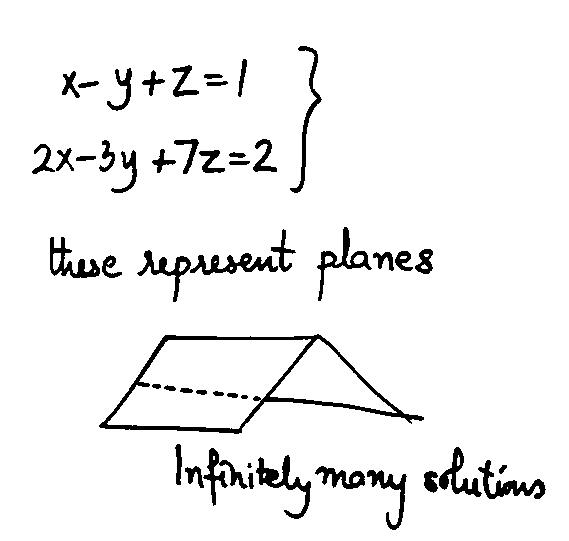 x-y+z=1
2x-3y+7z=2
these represent planes
Infinitely many solutions